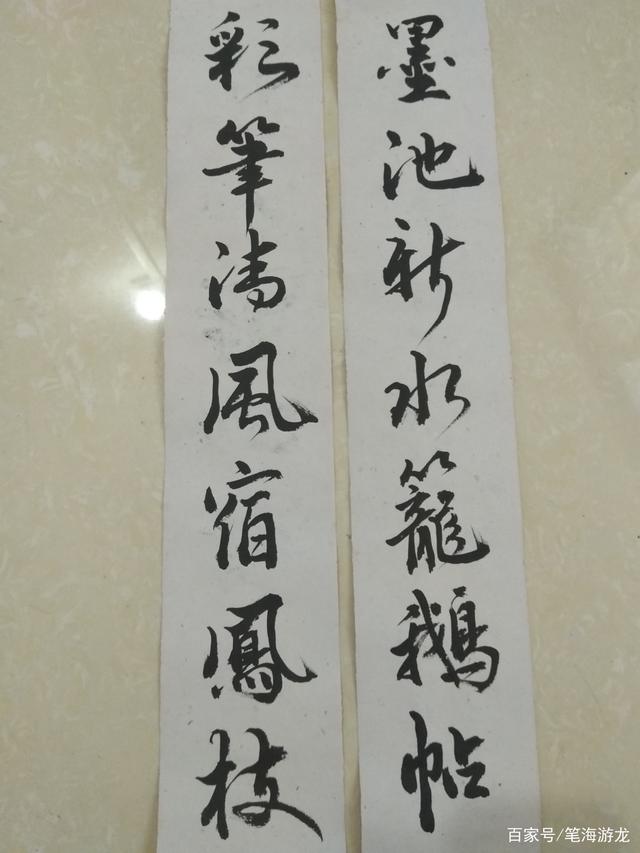 墨池新水籠鵝帖
彩筆清風宿鳳枝
百家号/笔海游龙